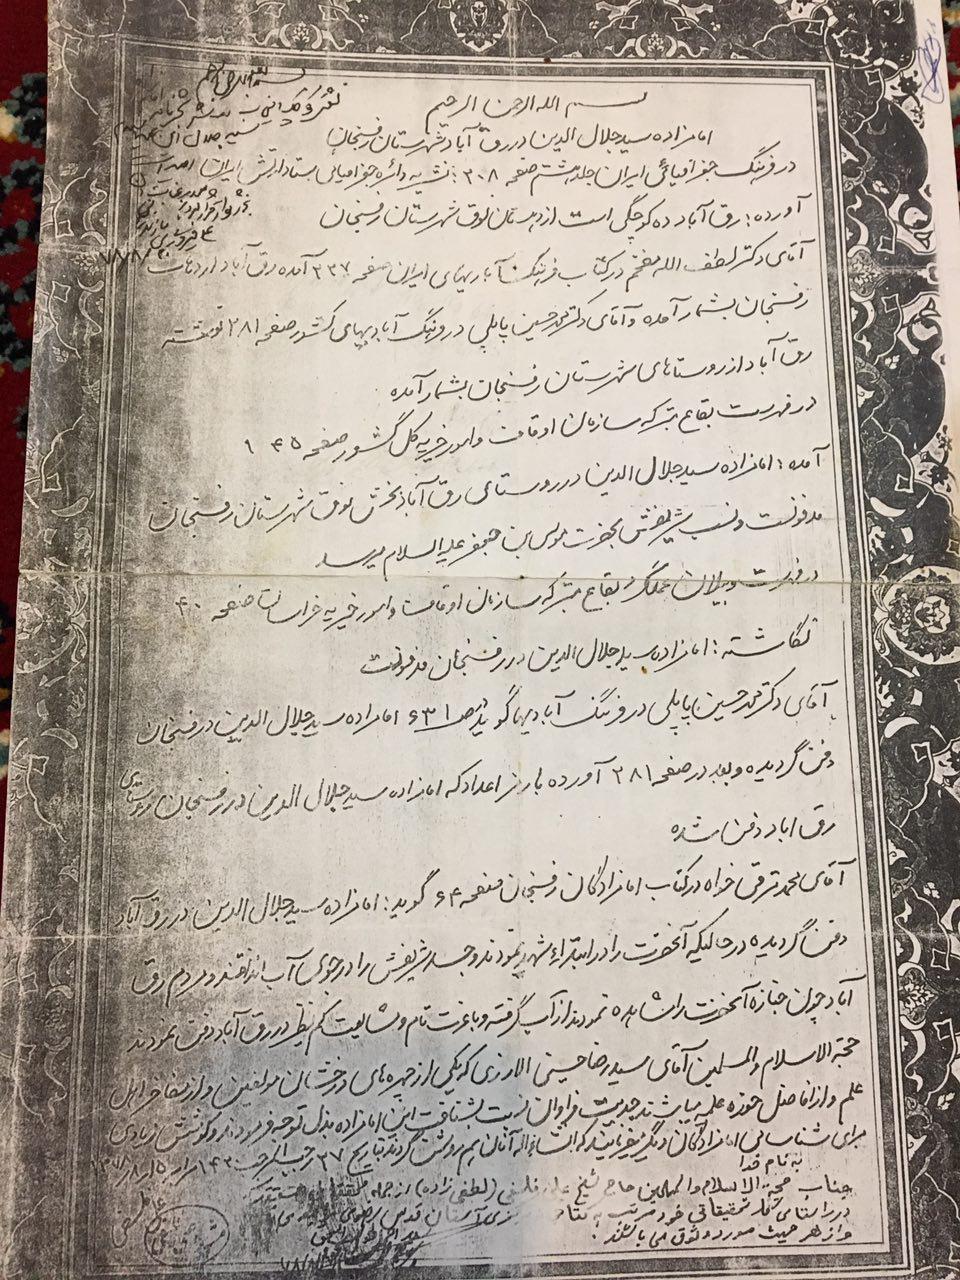 بسم الله الرحمن الرحیم
امامزاده سید جلال الدین در رق آباد شهرستان رفسنجان
در فرهنگ جغرافیائی ایران جلد هشتم صفحه ۲۰۸ نشریه دائره جغرافیائی ستاد ارتش ایران
آورده: رق آباد ده کوچکی است از دهستان نوق شهرستان رفسنجان
آقای دکتر لطف الله مفخم در کتاب فرهنگ آبادیهای ایران صفحه ۲۳۷ آمده رق آباد از دهات
رفسنجان بشمار آمده و آقای دکتر محمد حسین پاپلی در فرهنگ آبادیهای کشور صفحه ۲۸۱ نوشته
رق آباد از روستاهای شهرستان رفسنجان بشمار آمده
در فهرست بقاع متبرکه سازمان اوقاف و امور خیریه کل کشور صفحه ۱۴۵
آمده: امامزاده سید جلال الدین در روستای رق آباد بخش نوق شهرستان رفسنجان
مدفونست و نسب شریفش بحضرت موسی بن جعفر علیه السلام میرسد
در فهرست و بیلان عملکرد بقاع متبرکه سازمان اوقاف و امور خیریه خراسان صفحه ۴۰
نگاشته: امامزاده سید جلال الدین در رفسنجان مدفونست
آقای دکتر محمد حسین پاپلی در فرهنگ آبادیها گوید در ص ۶۳۱ امامزاده سید جلال الدین در رفسنجان
دفن گردیده و بعد در صفحه ۲۸۱ آورده با رمز اعداد که امامزاده سید جلال الدین در رفسنجان روستای
رق اباد دفن شده
آقای محمد ترقی خواه در کتاب امامزادگان رفسنجان صفحه ۶۴ گوید: امامزاده سید جلال الدین در رق آباد
دفن گردیده در حالیکه آنحضرت را در ابتداء شهید نمودند و جسد شریفش را در جوی آب انداختند و مردم رق
آباد چون جنازه آنحضرت را مشاهده نمودند از آب گرفته و با عزت تام و مشایعت کم نظیر در رق آباد دفن نمودند
حجة الاسلام والمسلمین آقای سید رضا حسینی که یکی از چهره های درخشان مولفین و از مفاخر اهل
علم و از افاضل حوزه علمیه میباشند جدیت فراوان نسبت بشناخت این امامزاده بذل توجه فرمودند و کوشش زیادی
برای شناسایی امامزادگان دیگر میفرمایند که انشاءالله آنان هم روشن گردند بتاریخ ۲۷ رجب المرجب ۱۴۲۰
به نام خدا
جناب حجة الاسلام والمسلمین حاج شیخ علی فلسفی (لطفی زاده) از جمله
در راستای کار تحقیقاتی خود آستان قدس رضوی
و از هر حیث مورد وثوق می باشند.